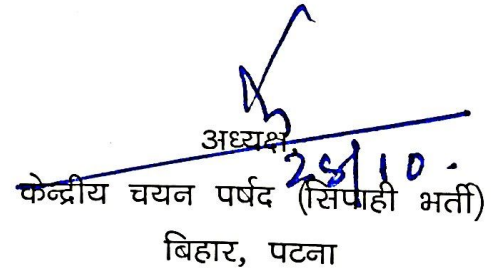 अध्यक्ष
केन्द्रीय चयन पर्षद (सिपाही भर्ती)
बिहार, पटना